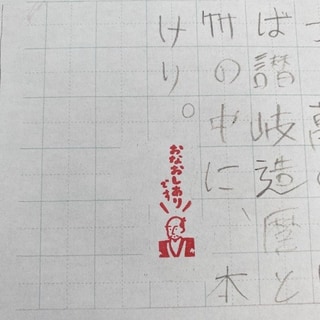 ば讃岐造麿と
竹の中に、本
けり。
おなおしあり
です